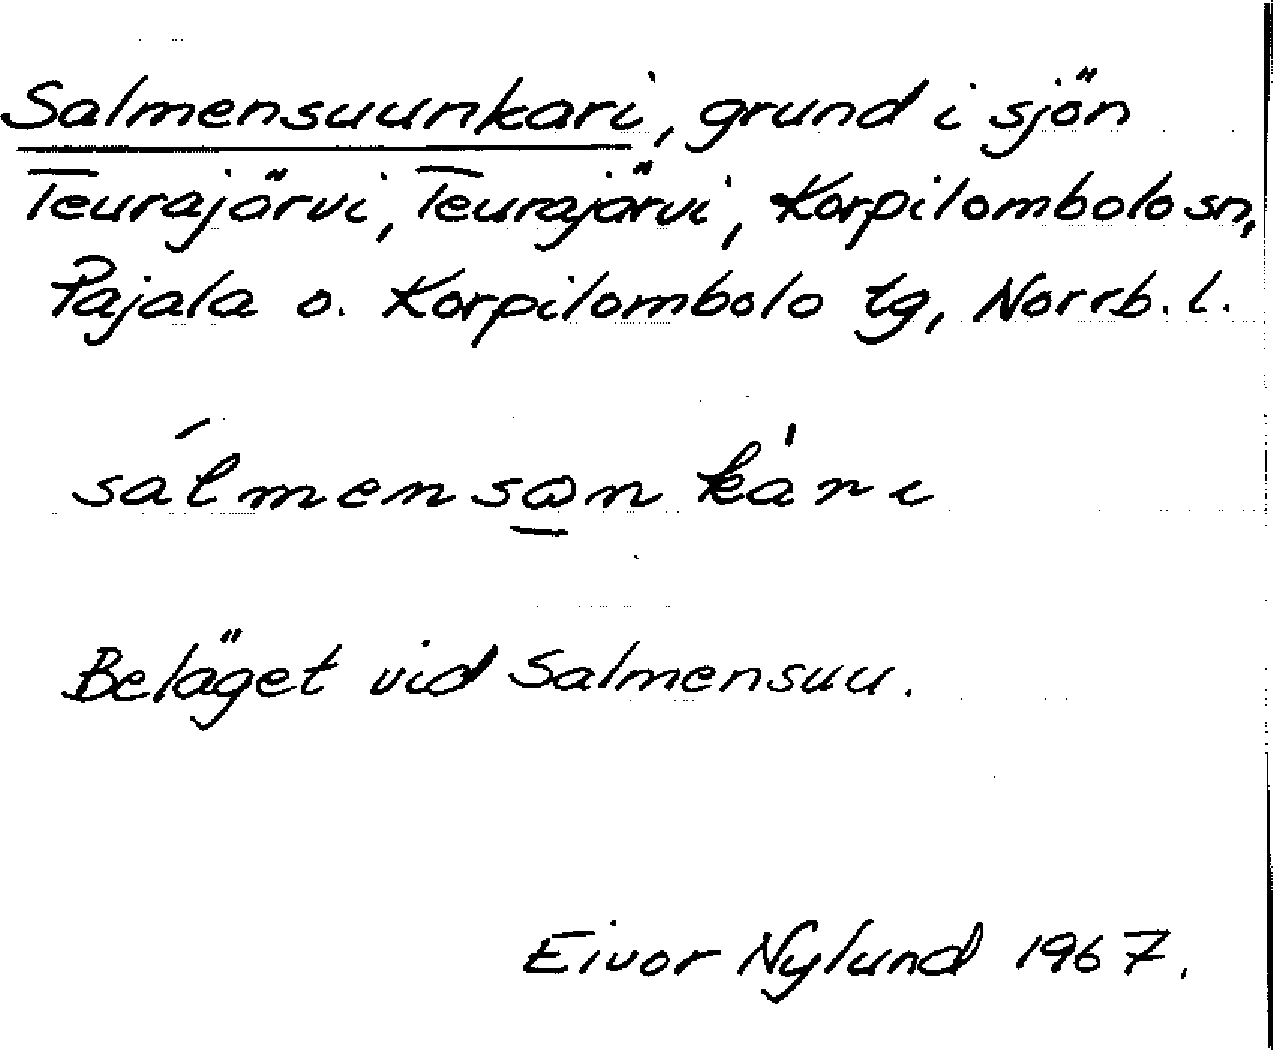 Salmensuunkari, grund i sjön
Teurajärvi, Teurajärvi, Korpilombolo sn,
Pajala o. Korpilombolo tg, Norrb. l.
sálmensω̱n kàri
Beläget vid Salmensuu.
Eivor Nylund 1967.